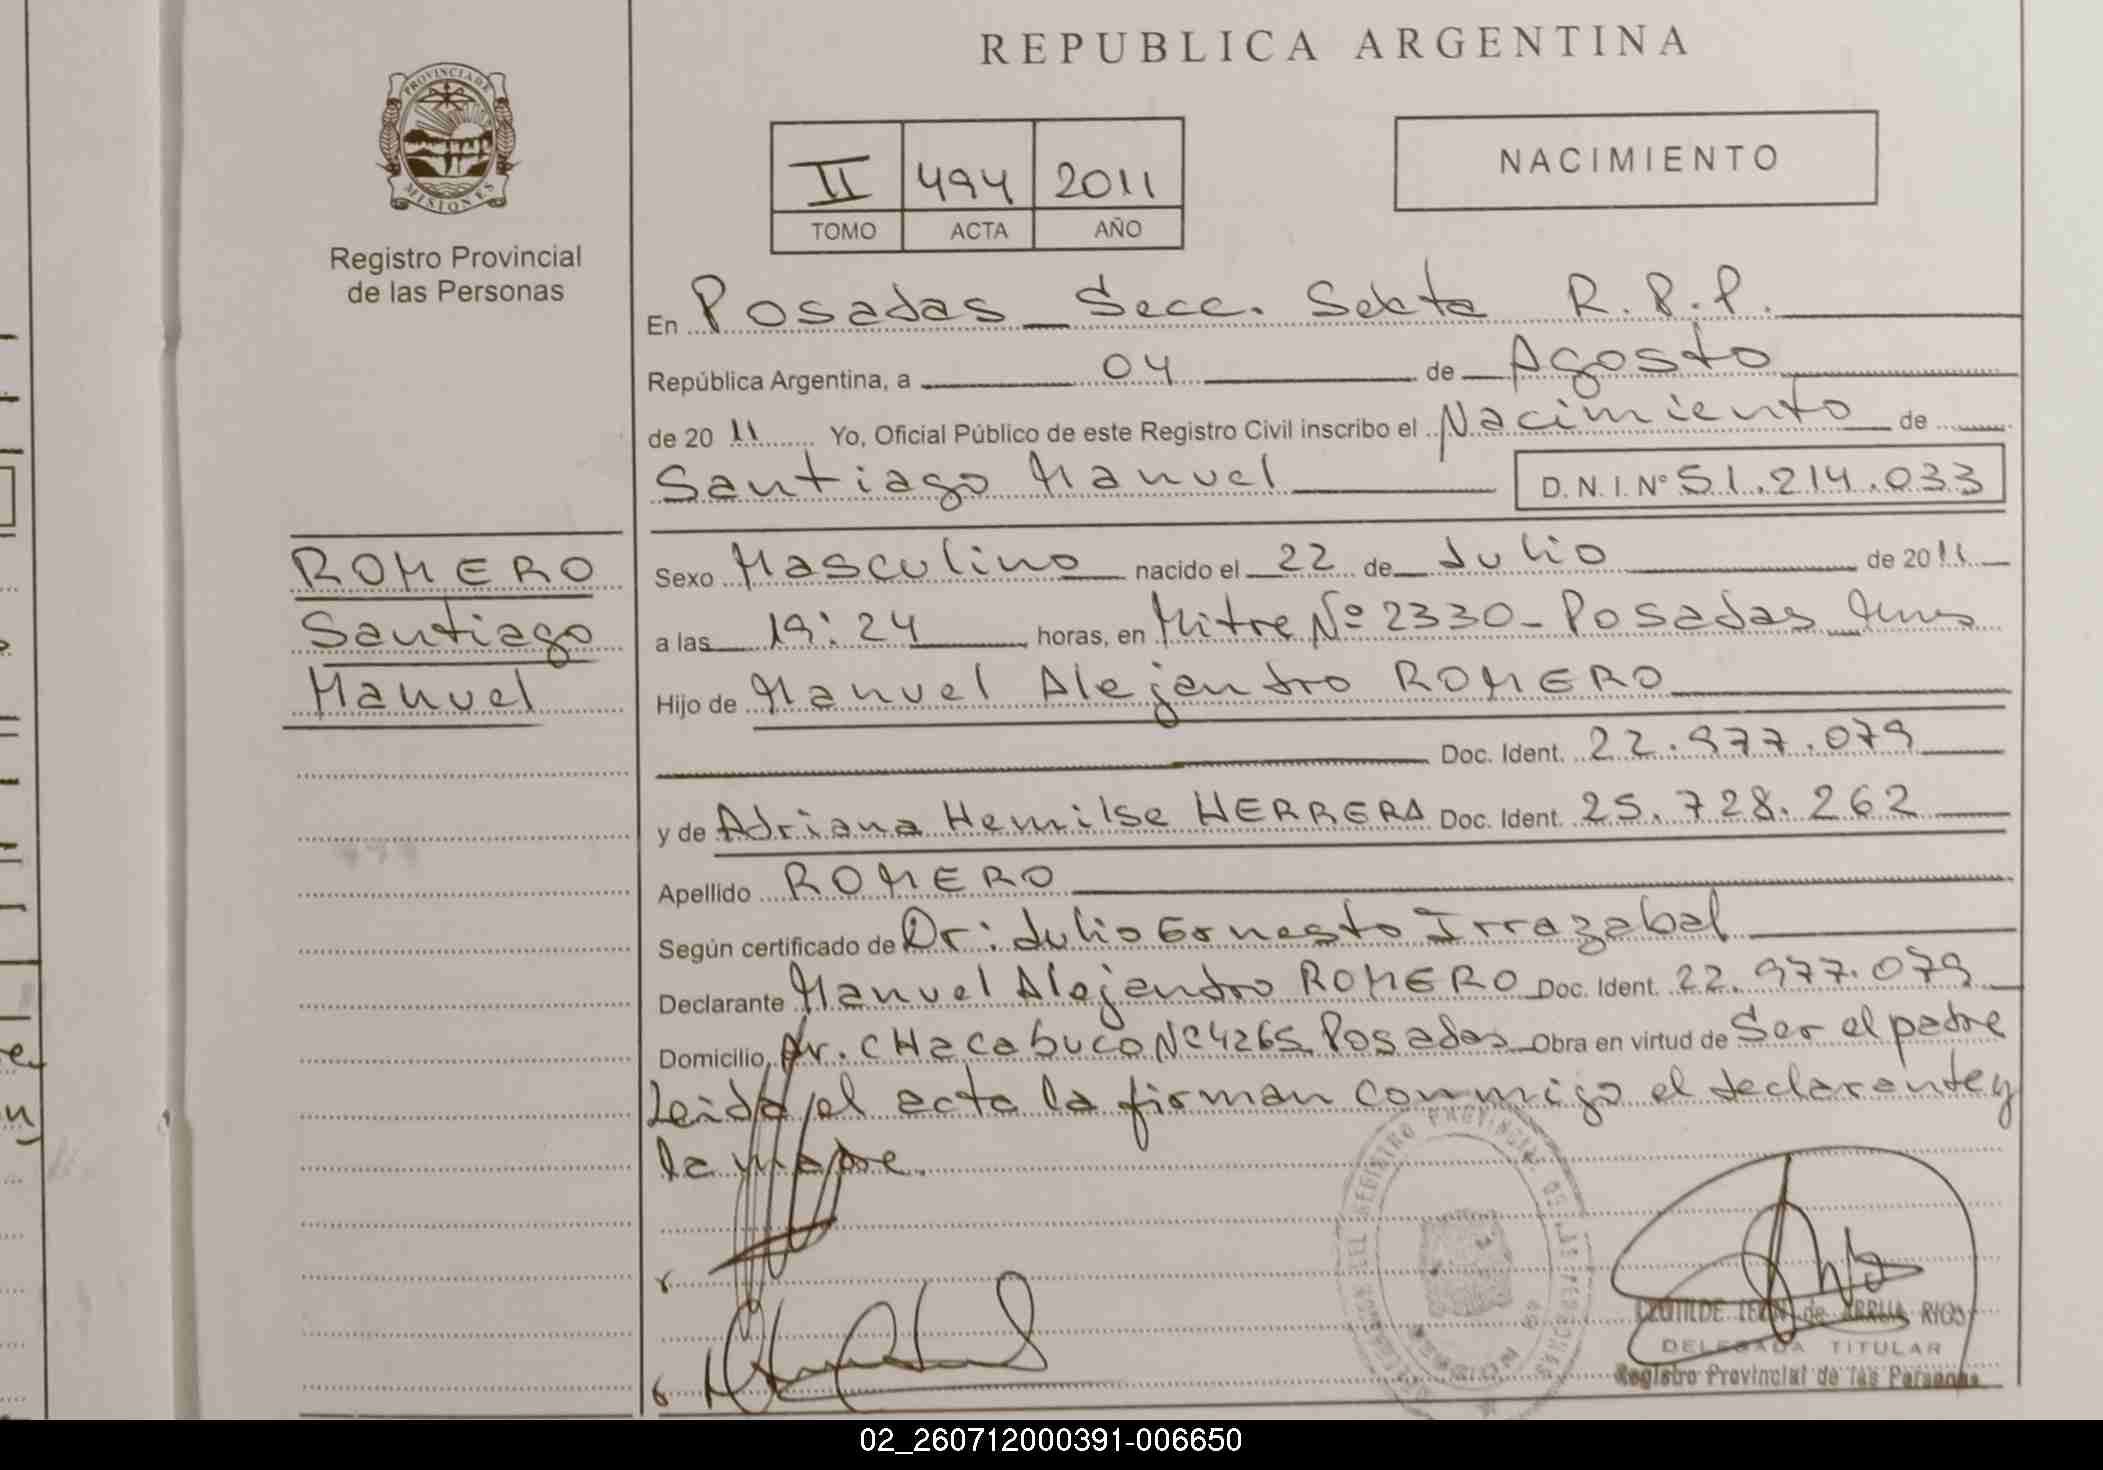 REPUBLICA ARGENTINA
PROVINCIA DE MISIONES
Registro Provincial
de las Personas
II 494 2011
TOMO ACTA AÑO
NACIMIENTO
En Posadas Secc. Sexta R.P.P.
República Argentina, a 04 de Agosto
de 2011 Yo, Oficial Público de este Registro Civil inscribo el Nacimiento de
Santiago Manuel D.N.I. Nº 51.214.033
ROMERO
Santiago
Manuel
Sexo Masculino nacido el 22 de Julio de 2011
a las 19:24 horas, en Mitre Nº 2330 - Posadas Mnes
Hijo de Manuel Alejandro ROMERO
Doc. Ident. 22.977.079
y de Adriana Hemilse HERRERA Doc. Ident. 25.728.262
Apellido ROMERO
Según certificado de Dr: Julio Ernesto Irrazabal
Declarante Manuel Alejandro ROMERO Doc. Ident. 22.977.079
Domicilio Av. CHacabuco Nº 4265 Posadas Obra en virtud de Ser el padre
Leida el acta la firman conmigo el declarante y
la madre.
CLOTILDE LEON de ARRUA RIOS
DELEGADA TITULAR
Registro Provincial de las Personas
02_260712000391-006650